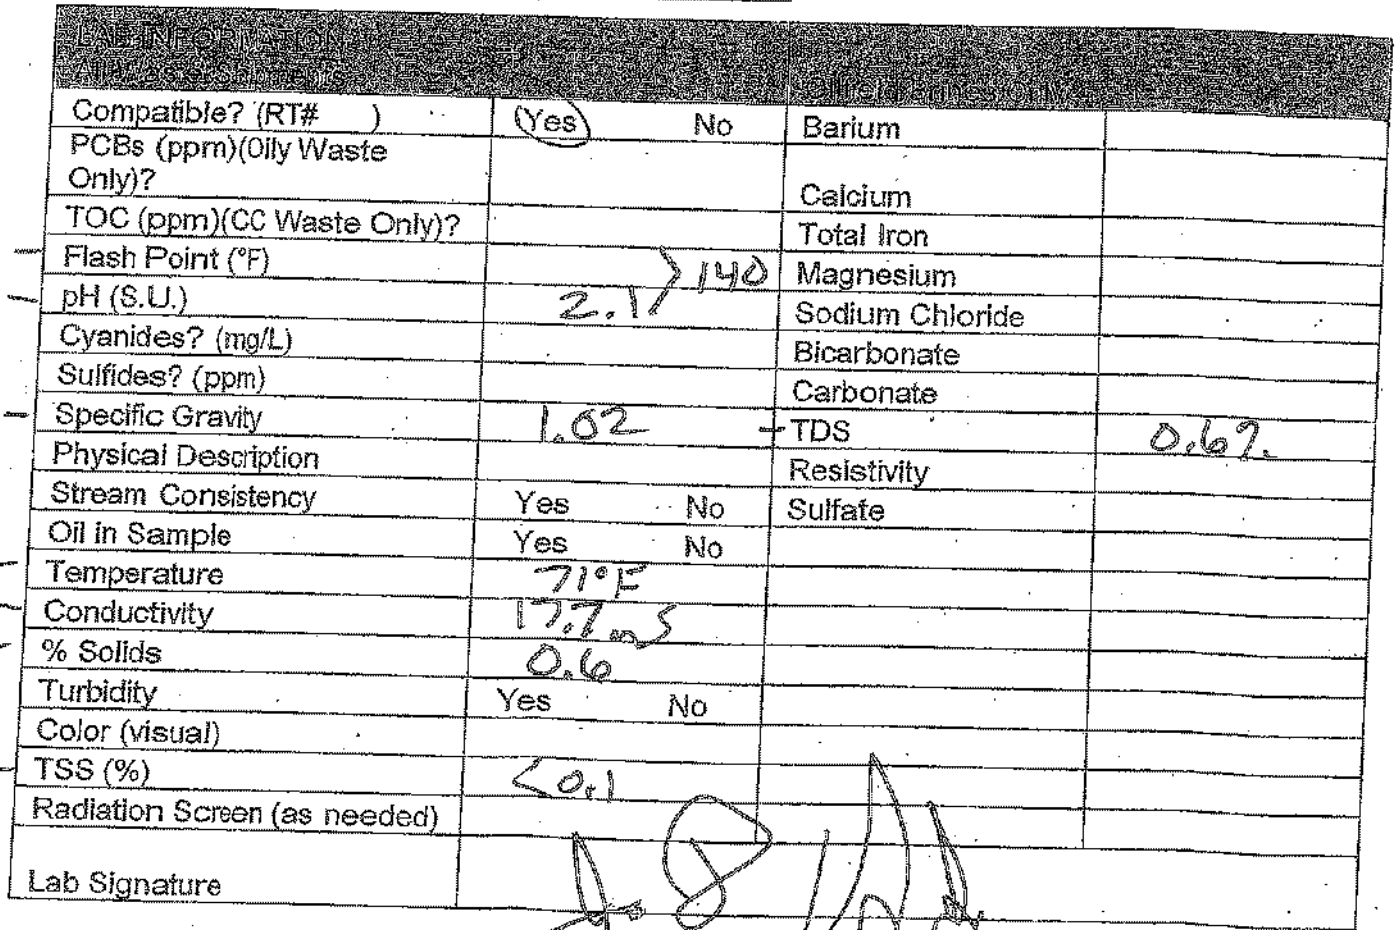 LAB INFORMATION
All Waste Shipments Oilfield Brines Only
Compatible? (RT# ) Yes No Barium
PCBs (ppm)(Oily Waste
Only)? Calcium
TOC (ppm)(CC Waste Only)? Total Iron
Flash Point (°F) >140 Magnesium
pH (S.U.) 2.1 Sodium Chloride
Cyanides? (mg/L) Bicarbonate
Sulfides? (ppm) Carbonate
Specific Gravity 1.02 TDS 0.6%
Physical Description Resistivity
Stream Consistency Yes No Sulfate
Oil in Sample Yes No
Temperature 71°F
Conductivity 17.7 mS
% Solids 0.6
Turbidity Yes No
Color (visual)
TSS (%) <0.1
Radiation Screen (as needed)
Lab Signature